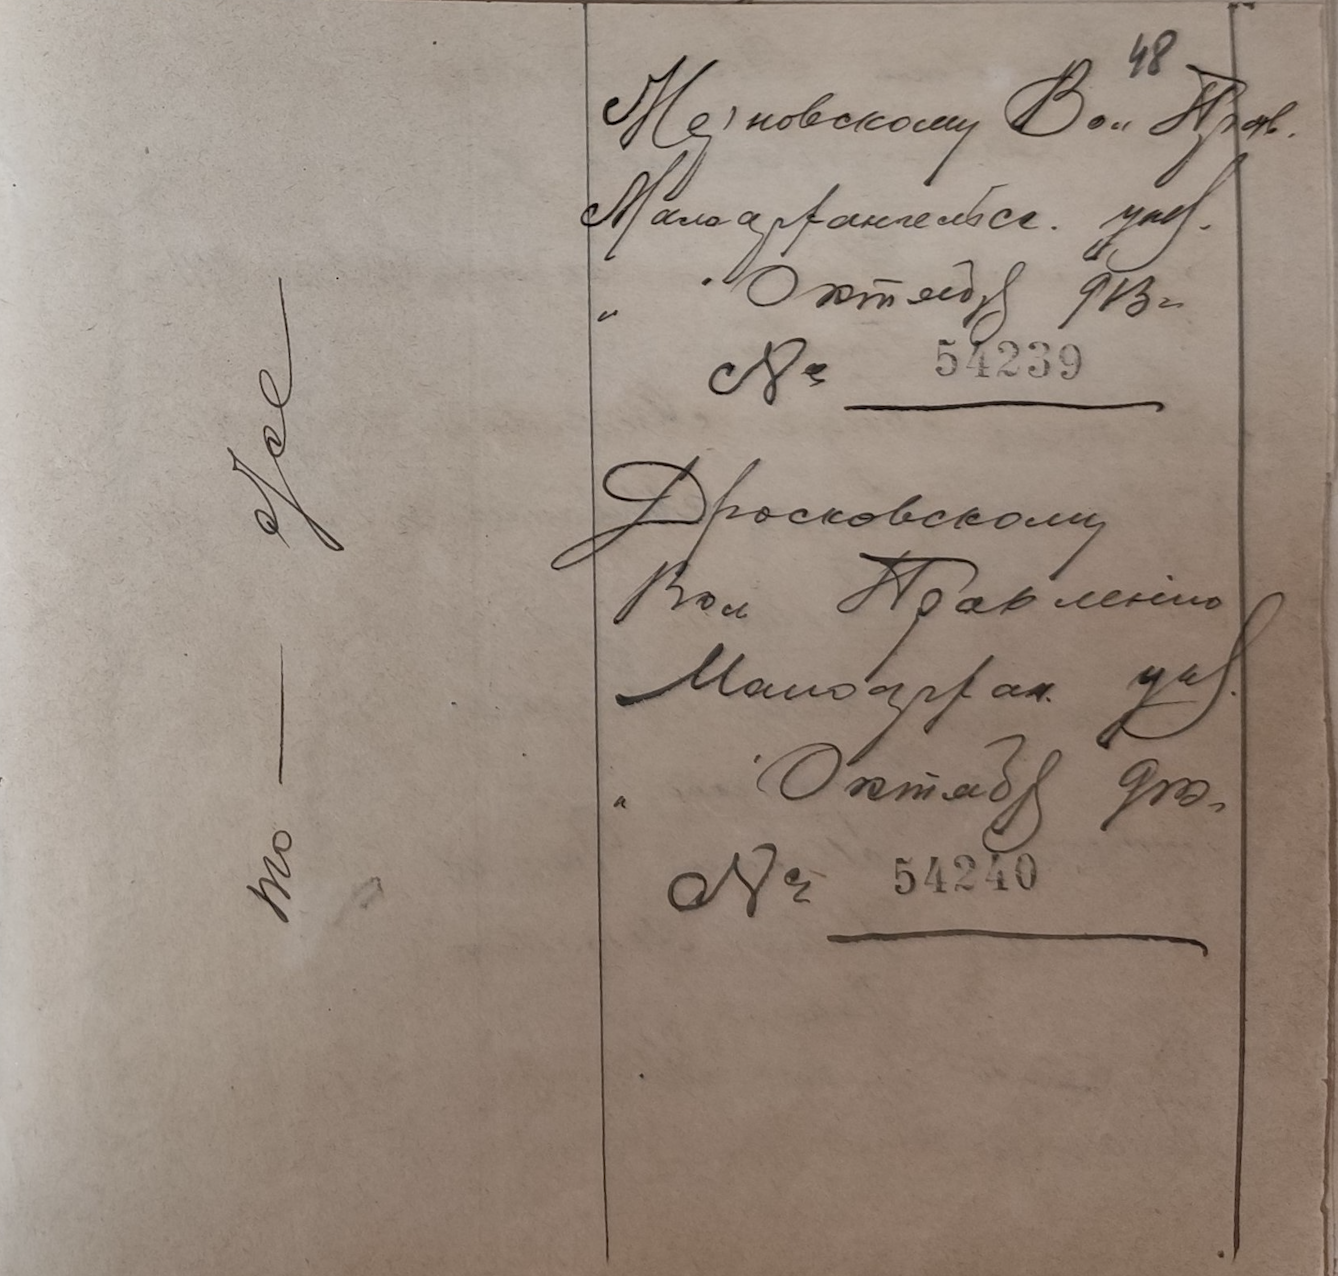 48
Вол Прав.
Малоархангельск. уѣз.
" " Октября 913 г.
№ 54239
Дросковскому
Вол Правленію
Малоархан. уѣз.
" " Октября 913 г.
№ 54240
то — же